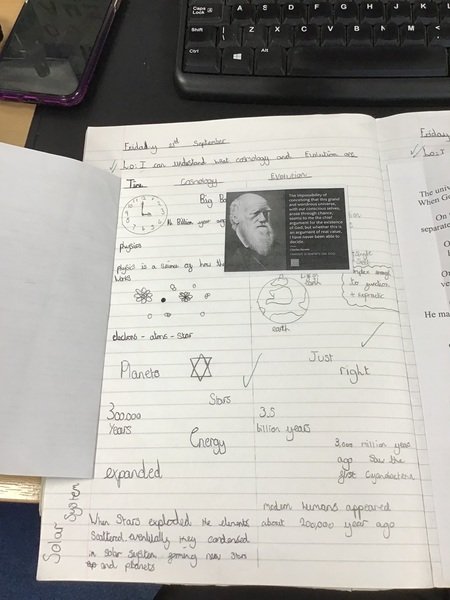 Friday 21st September
Lo: I can understand what cosmology and Evolution are
Time
Cosmology
Evolution
Big
Billion year
physics
physics is a science of how the
works
electrons - atoms - star
Planets
Stars
300,000
Years
Energy
expanded
Solar System
When Stars exploded the elements
Scattered eventually they condensed
in solar system forming new stars
and planets
The impossibility of
conceiving that this grand
and wondrous universe,
with our conscious selves,
arose through chance,
seems to me the chief
argument for the existence
of God; but whether this is
an argument of real value,
I have never been able to
decide.
earth
earth
to function
Just
right
3.5
billion years
3,000 million years
ago Saw the
first Cyanobacteria
modern humans appeared
about 200,000 year ago
Friday
Lo: I
The univ
When Go
On
separate
He ma
Caps
Lock
A
S
D
F
G
H
J
K
Shift
Z
X
C
V
B
N
M
Ctrl
Alt